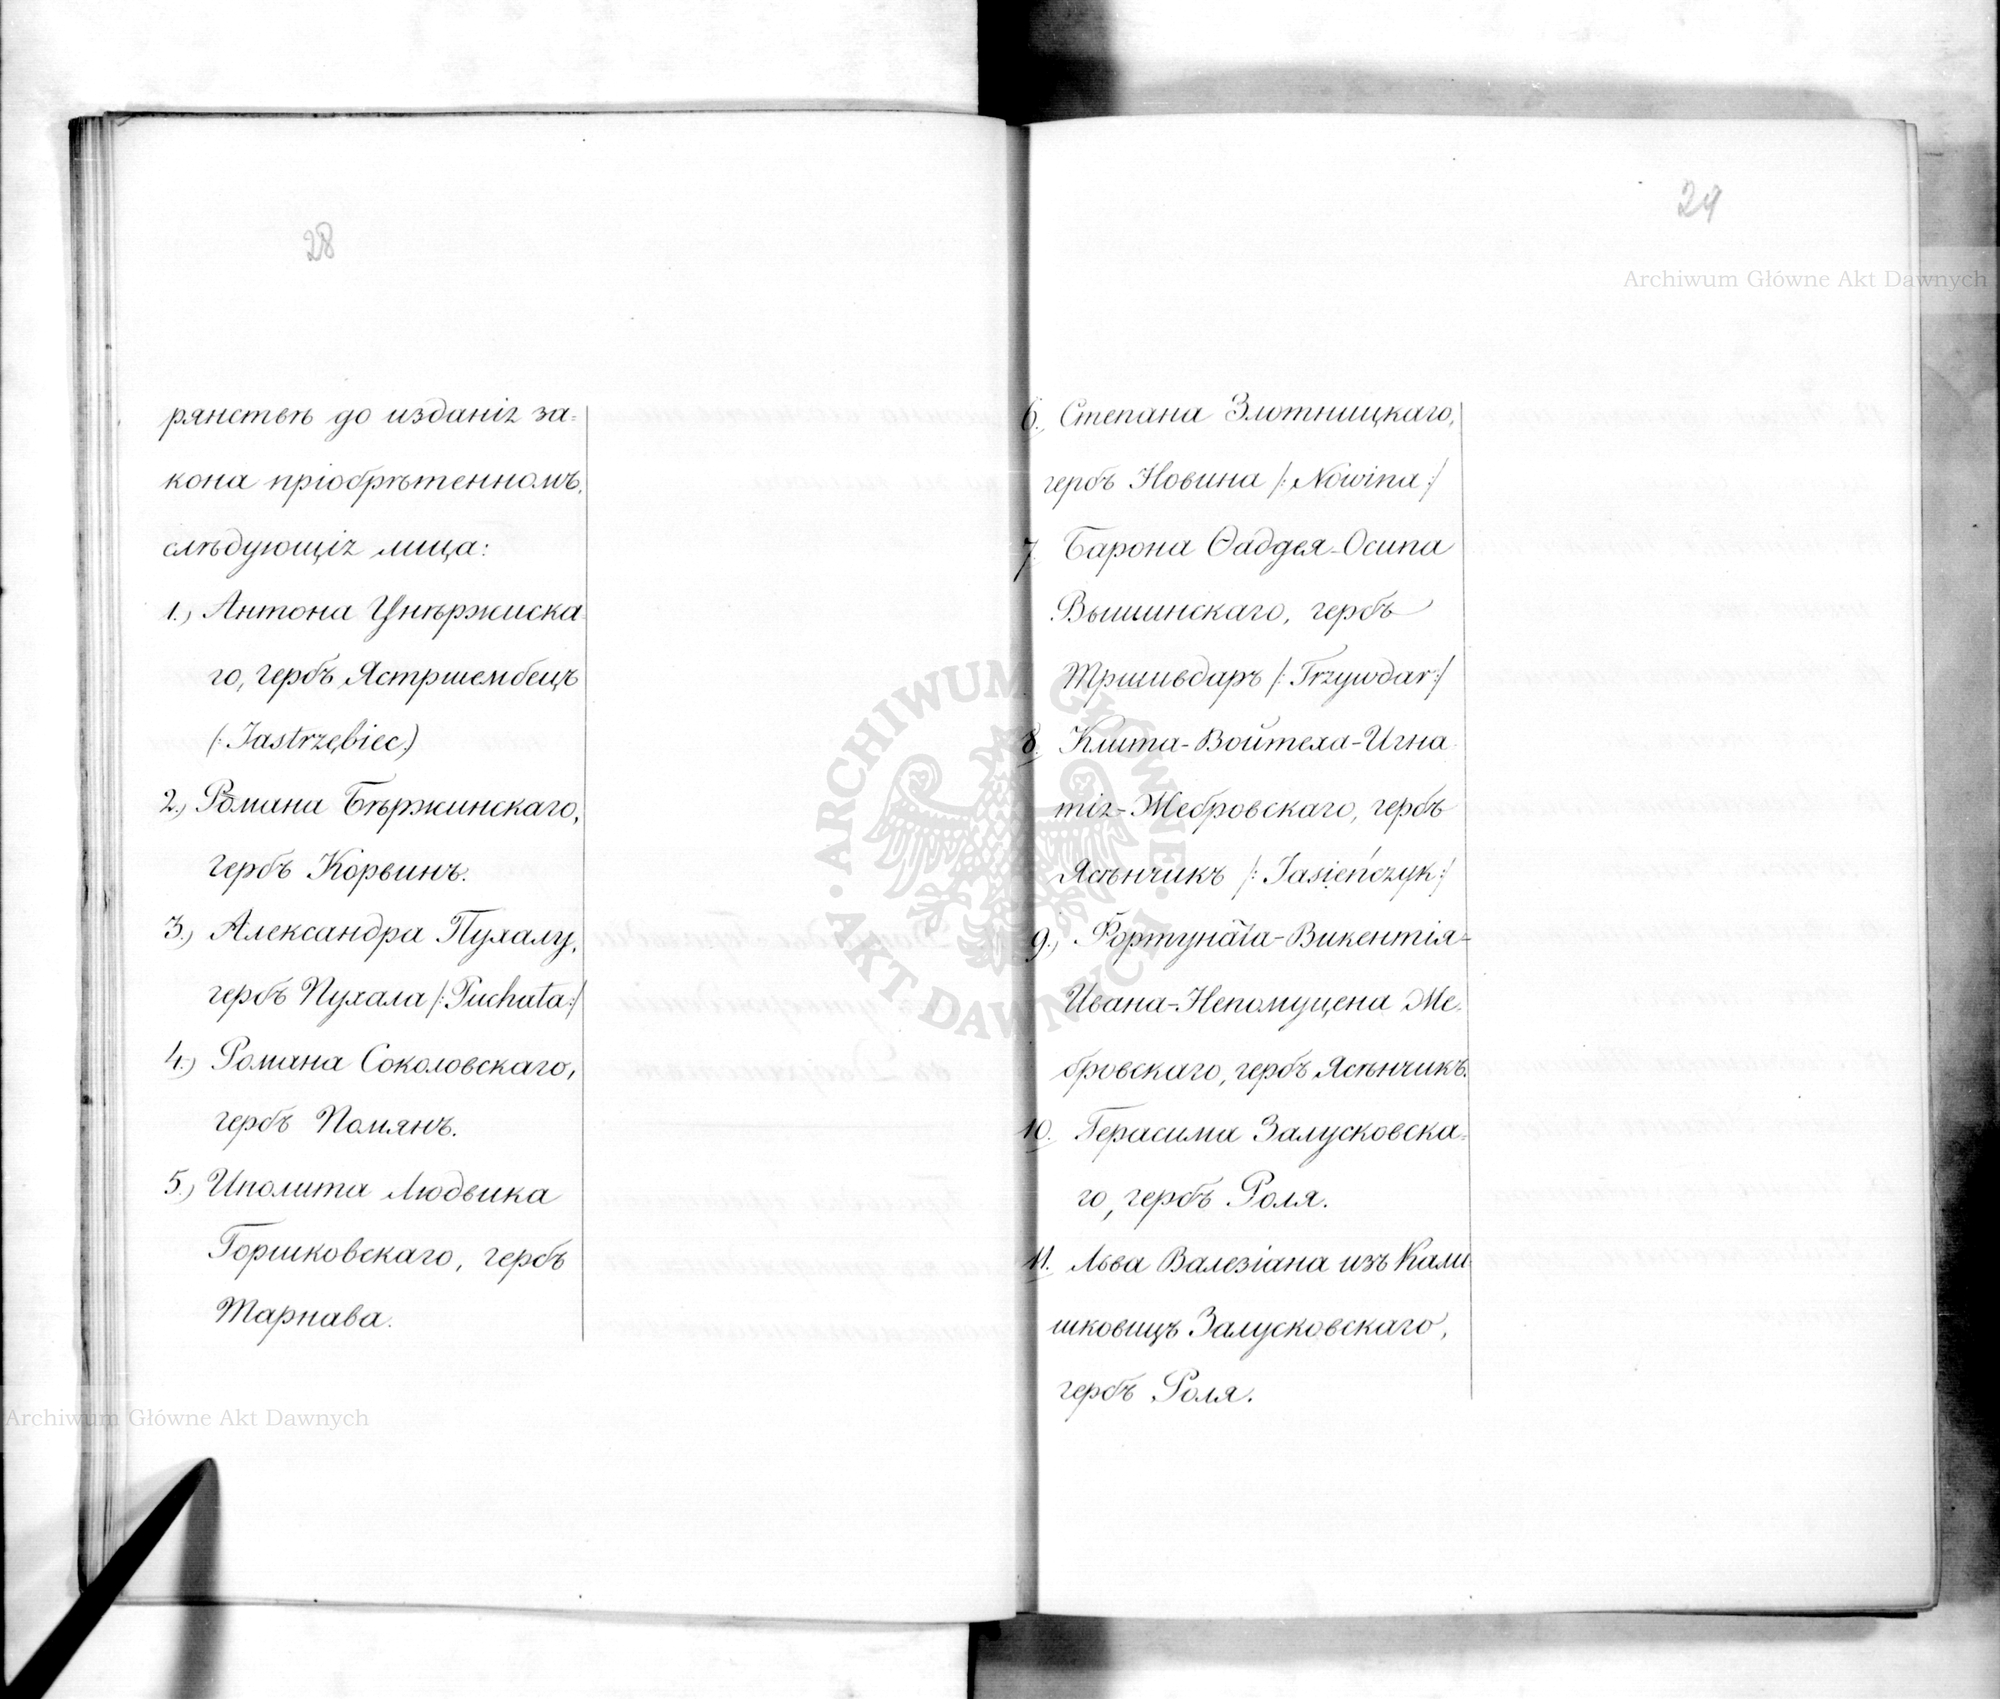 28
рянствѣ до изданія за=
кона пріобрѣтенномъ,
слѣдующія лица:
1.) Антона Цнѣржиска
го, гербъ Ястршембецъ
(: Jastrzębiec.)
2.) Романа Бѣржинскаго,
гербъ Корвинъ.
3.) Александра Пухалу,
гербъ Пухала /: Puchała :/
4.) Романа Соколовскаго,
гербъ Помянъ.
5.) Иполита Людвика
Горшковскаго, гербъ
Тарнава.
29
6. Степана Злотницкаго,
гербъ Новина /: Nowina :/
7. Барона Ѳаддея-Осипа
Вышинскаго, гербъ
Тршивдаръ /: Trzywdar :/
8. Клита-Войтеха-Игна
тія-Жебровскаго, гербъ
Ясѣнчикъ /: Jasieńczyk :/
9.) Фортуната-Викентія-
Ивана-Непомуцена Же.
бровскаго, гербъ Ясѣнчикъ.
10. Герасима Залусковска=
го, гербъ Роля.
11. Льва Валезіана изъ Кали
шковицъ Залусковскаго,
гербъ Роля.
Archiwum Główne Akt Dawnych
ARCHIWUM GŁÓWNE AKT DAWNYCH
Archiwum Główne Akt Dawnych